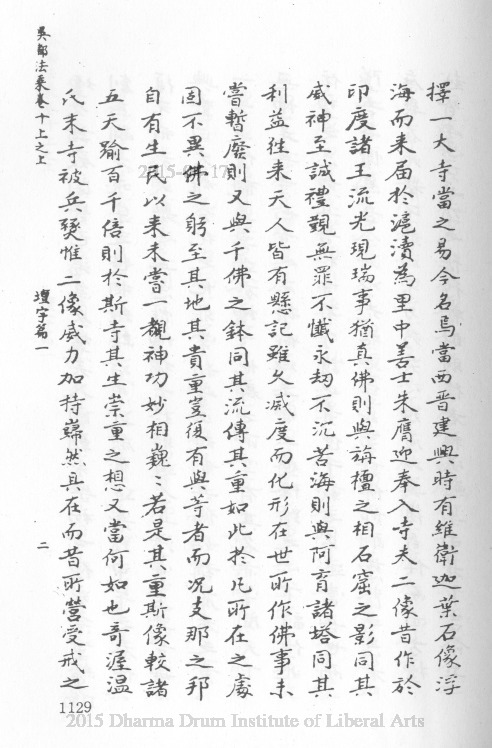 擇一大寺當之易今名焉當西晉建興時有維衛迦葉石像浮
海而来届於滬瀆為里中善士朱膺迎奉入寺夫二像昔作於
印度諸王流光現瑞事猶真佛則與旃檀之相石窟之影同其
威神至誠禮觀無罪不懺永劫不沉苦海則與阿育諸塔同其
利益徃来天人皆有懸記雖久滅度而化形在世所作佛事未
嘗暫廢則又與千佛之鉢同其流傳其重如此於凡所在之處
固不異佛之躬至其地其貴重豈復有與等者而况支那之邦
自有生民以来未嘗一覩神功妙相巍〻若是其重斯像較諸
五天踰百千倍則於斯寺其生崇重之想又當何如也奇渥温
氏末寺被兵燹惟二像威力加持巋然具在而昔所營受戒之
吳都法乘卷十上之上
壇宇篇一
二
1129
2015 Dharma Drum Institute of Liberal Arts